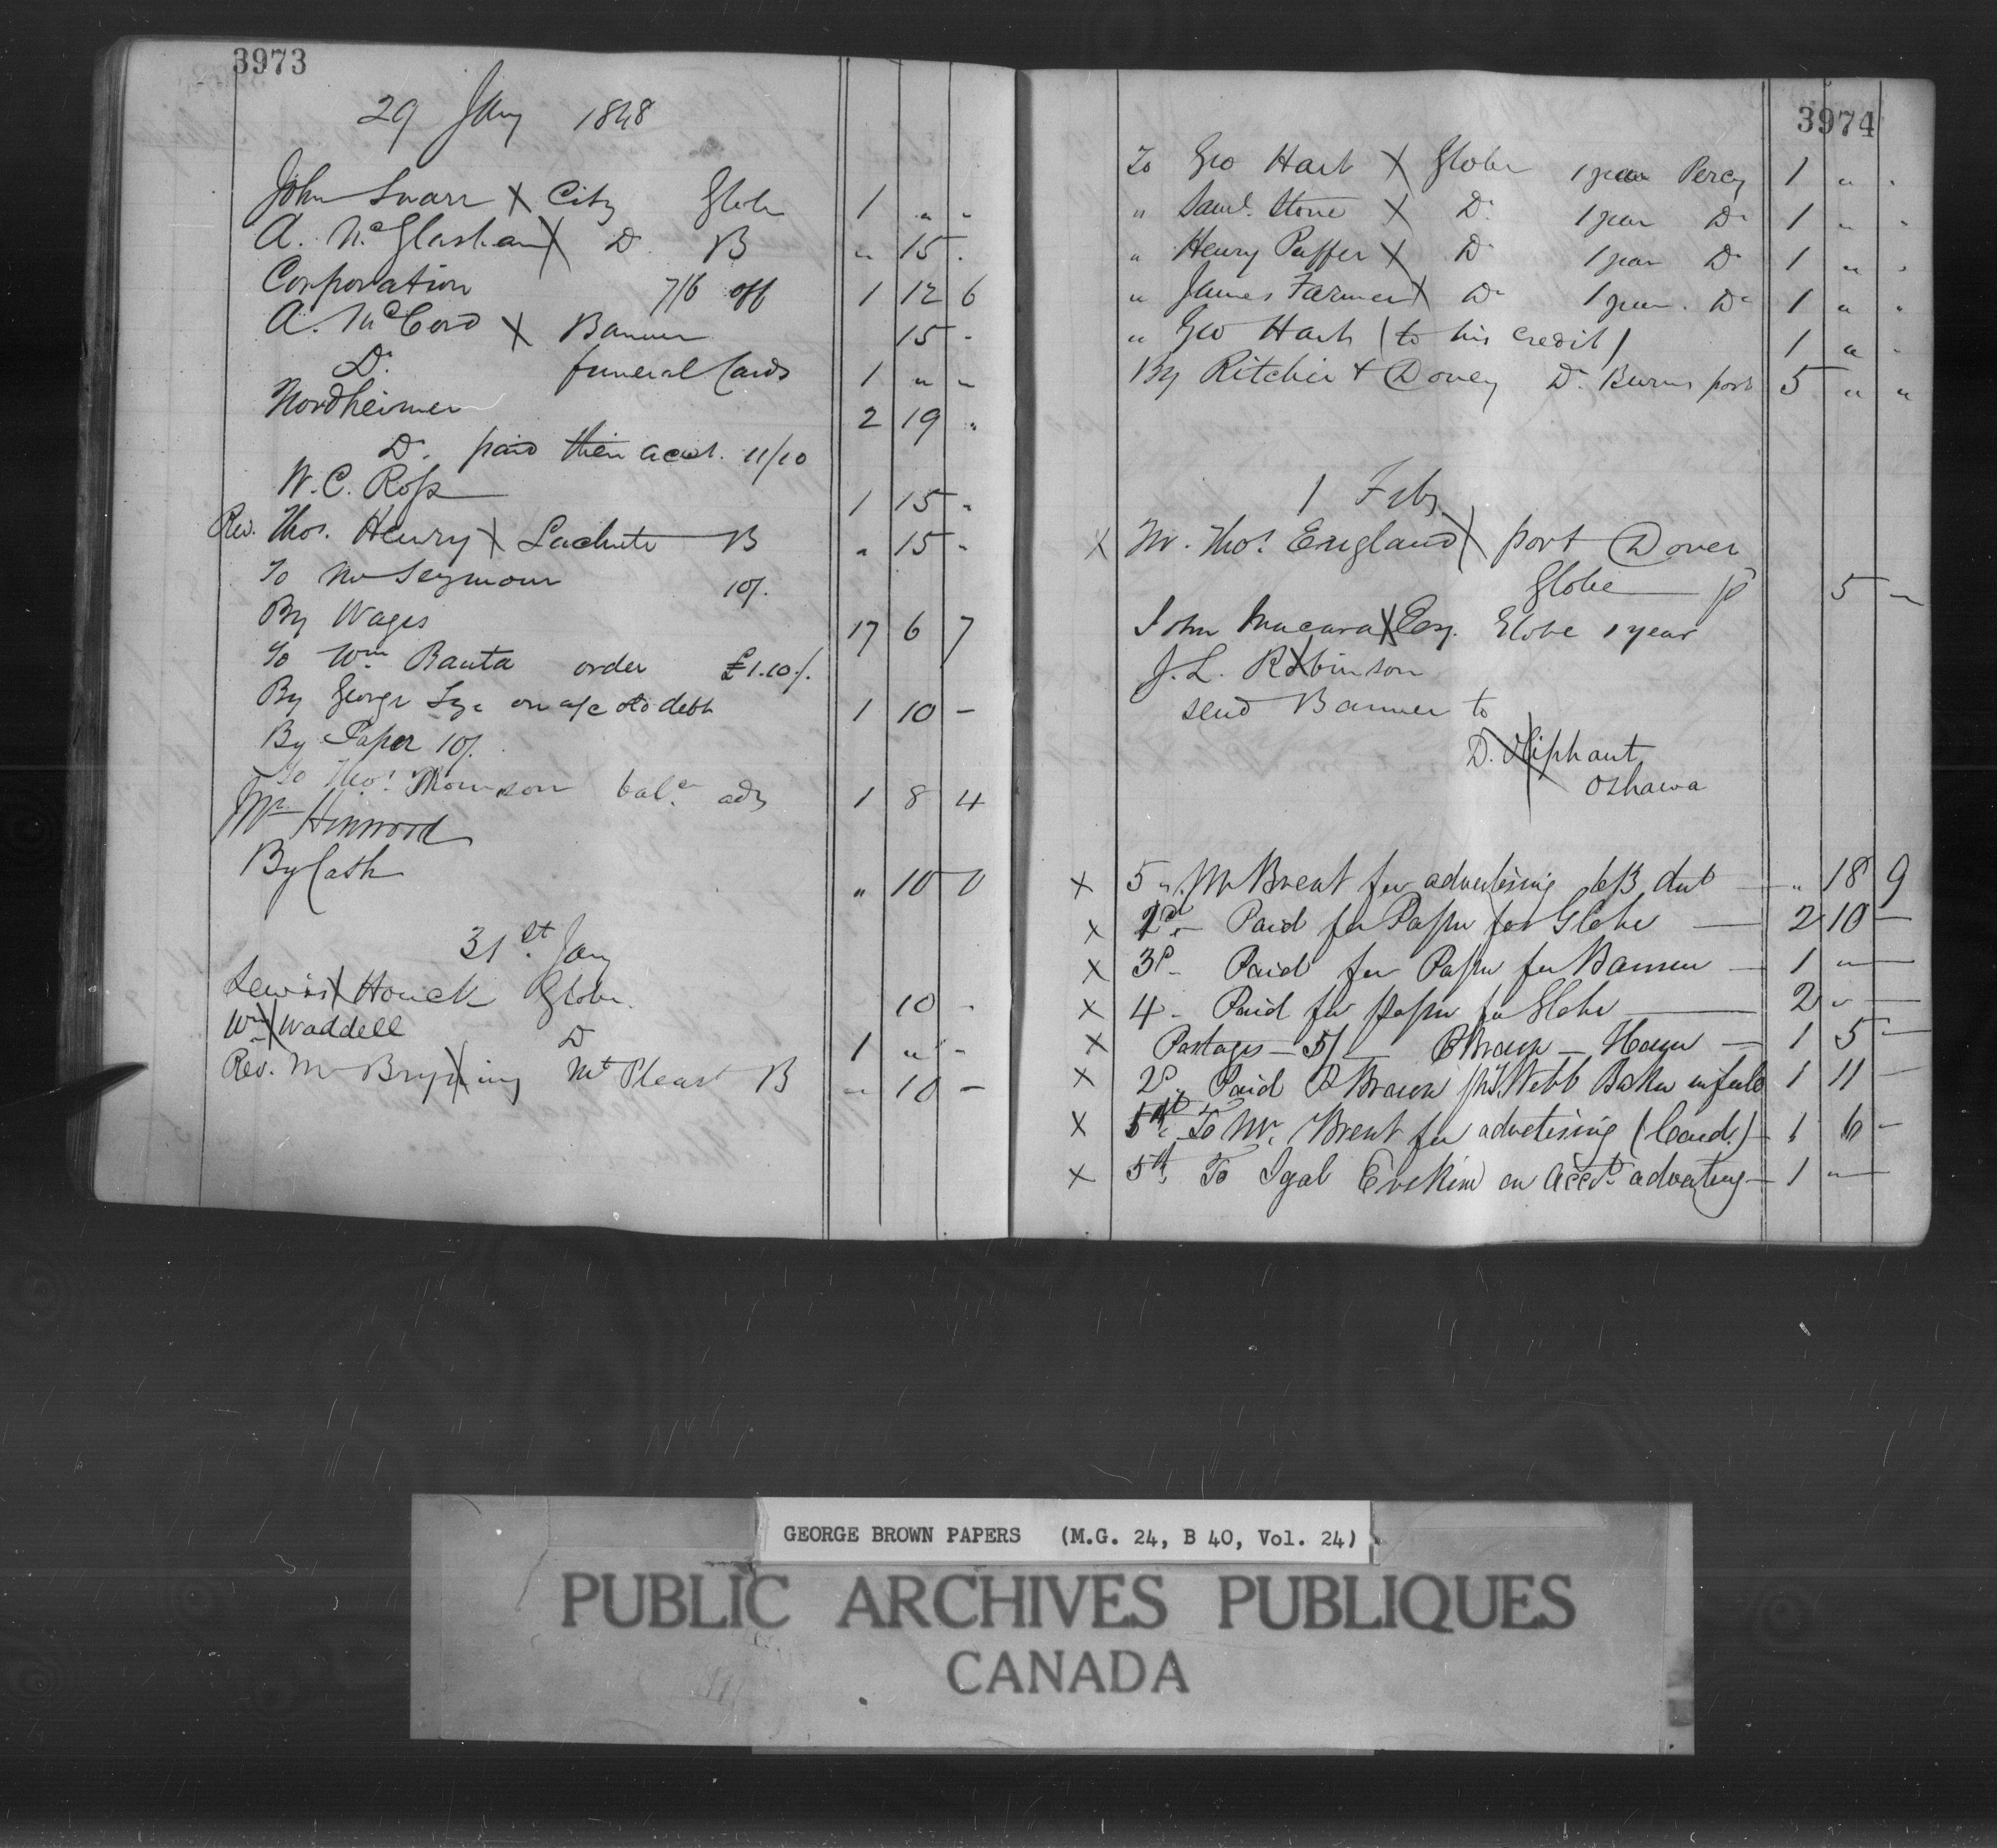 3973
29 Jany 1848
John Swarr X City Globe 1 " "
A. McGlashan X Do B " 15 "
Corporation 7/6 off 1 12 6
A. McCord X Banner 15 "
Do. funeral Cards 1 " "
Nordheimer 2 19 "
Do. paid their acct. 11/10
W. C. Ross 1 15 "
Rev. Thos. Henry X Lachute B " 15 "
To Mr Seymour 10/.
By Wages 17 6 7
To Wm Banta order £1.10/.
By George on a/c debt 1 10 -
By Paper 10/.
To Thos. Thomson balce adv 1 8 4
Mr Hinwood
By Cash " 10 0
31st. Jany
Lewis X Houck Globe 10 "
Wm X Waddell Do 1 " -
Rev. Mr Bryning Mt Pleast B " 10 -
3974
To Geo Hart X Globe 1 year Percy 1 " "
" Saml. Stone X Do 1 year Do 1 " "
" Henry Puffer X Do 1 year Do 1 " "
" James Farmer X Do 1 year. Do 1 " "
" Geo Hart (to his credit) 1 " "
By Ritchie + Dovey Do. Burns port 5 " "
1 Feby
X Mr. Thos. England X port Dover
Globe 5 -
John Macara X Esq. Globe 1 year
J. L. Robinson
send Banner to
D. Oliphant
Oshawa
X 5 " Mr Brent for advertising " 18 9
X 2d - Paid for Paper for Globe — 2 10 -
X 3d - Paid for Paper for Banner — 1 " -
X 4 - Paid for paper for Globe — 2 " -
X Postages - 5/ — 1 5 -
X 2d. Paid P Brown Webb Baker in full 1 11 -
X 5th. To Mr. Brent for advertising (Card.) - 1 6 -
X 5th. To Erskine on Acct. advertising - 1 " -
GEORGE BROWN PAPERS (M.G. 24, B 40, Vol. 24)
PUBLIC ARCHIVES PUBLIQUES
CANADA